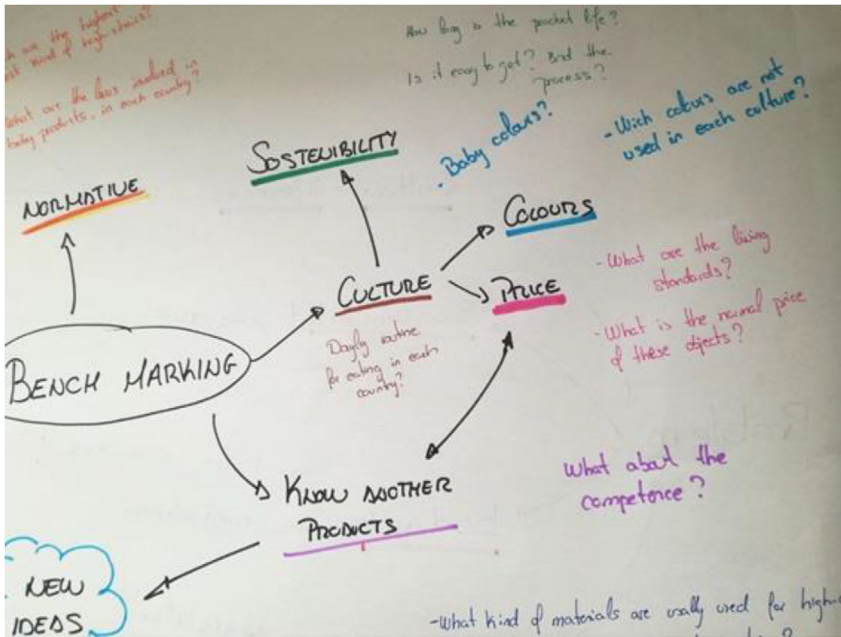 are the highest
kind of high-chairs?
What are the laws involved in
baby products, in each country?
NORMATIVE
How long is the product life?
Is it easy to get? And the
process?
SOSTENIBILITY
- Baby colours?
- Wich colours are not
used in each culture?
COLOURS
CULTURE
PRICE
Dayly routine
for eating in each
country?
- What are the living
standards?
- What is the normal price
of these objects?
BENCH MARKING
KNOW ANOTHER
PRODUCTS
What about the
competence?
NEW
IDEAS
- What kind of materials are usally used for high-